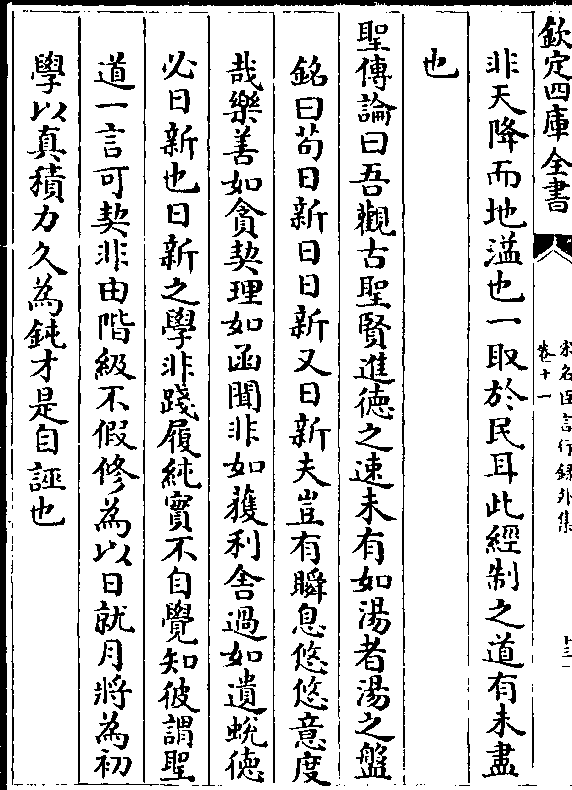 欽定四庫全書
宋名臣言行錄外集
卷十一
非天降而地溢也一取於民耳此經制之道有未盡
也
聖傳論曰吾觀古聖賢進徳之速未有如湯者湯之盤
銘曰苟日新日日新又日新夫豈有瞬息悠悠意度
哉樂善如貪契理如函聞非如獲利舍過如遺蛻徳
必日新也日新之學非踐履純實不自覺知彼謂聖
道一言可契非由階級不假修為以日就月將為初
學以真積力久為鈍才是自誣也